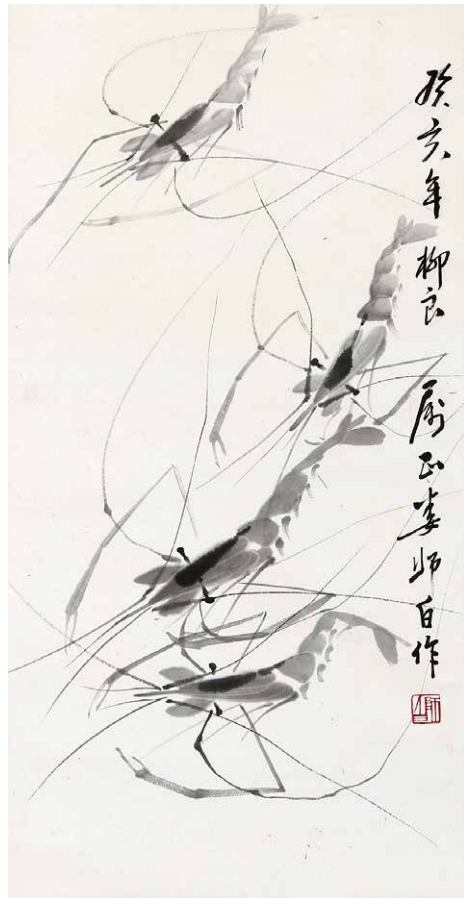 癸亥年柳良 属正娄师白作